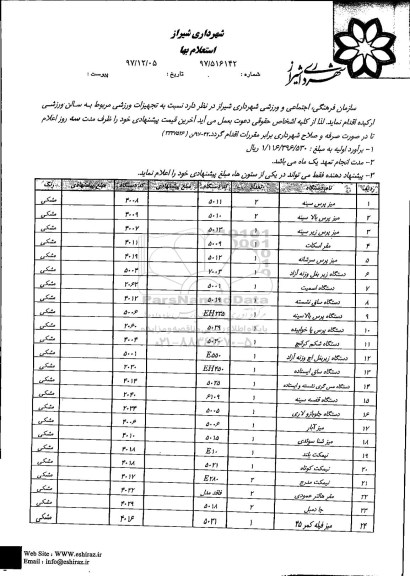 شهرداری شیراز
استعلام بها
شماره : ۹۷/۵۱۶۱۴۲
تاریخ : ۹۷/۱۲/۰۵
پیوست :
سازمان فرهنگی، اجتماعی و ورزشی شهرداری شیراز در نظر دارد نسبت به تجهیزات ورزشی مربوط به سالن ورزشی
ارکیده اقدام نماید. لذا از کلیه اشخاص حقوقی دعوت بعمل می آید آخرین قیمت پیشنهادی خود را ظرف مدت سه روز اعلام
تا در صورت صرفه و صلاح شهرداری برابر مقررات اقدام گردد.
۱- برآورد اولیه به مبلغ : ۱/۱۱۶/۳۹۶/۵۳۰ ریال
۲- مدت انجام تعهد یک ماه می باشد.
۳- پیشنهاد دهنده فقط می تواند در یکی از ستون ها، مبلغ پیشنهادی خود را اعلام نماید.
ردیف نام دستگاه تعداد کد دستگاه مبلغ پیشنهادی کد دستگاه مبلغ پیشنهادی رنگ
۱ میز پرس سینه ۲ ۵۰۱۱ ۴۰۰۸ مشکی
۲ میز پرس بالا سینه ۲ ۵۰۱۰ ۴۰۰۹ مشکی
۳ میز پرس زیر سینه ۵۰۱۳ ۴۰۰۷ مشکی
۴ مقر اسکات ۱ ۵۰۰۹ ۴۰۱۱ مشکی
۵ میز پرس سرشانه ۱ ۵۰۱۲ ۴۰۱۹ مشکی
۶ دستگاه زیر بغل وزنه آزاد ۷۰۰۳ ۵۰۰۴ مشکی
۷ دستگاه اسمیت ۱ ۵۰۰۱ ۲۰۶۳ مشکی
۸ دستگاه ساق نشسته ۵۰۱۹ ۴۰۱۲ مشکی
۹ دستگاه پرس بالا سینه EH۲۲۵ ۵۰۰۶ مشکی
۱۰ دستگاه پرس پا خوابیده ۵۰۲۹ ۲۰۶۰ مشکی
۱۱ دستگاه شکم کرانچ ۴۰۰۴ مشکی
۱۲ دستگاه زیربغل اچ وزنه آزاد ۱ E۵۵۰ ۵۰۰۱ مشکی
۱۳ دستگاه ساق ایستاده ۱ EH۲۵۰ ۲۰۳۰ مشکی
۱۴ ۱ ۵۰۲۵ ۴۰۱۴ مشکی
۱۵ دستگاه قفسه سینه ۱ ۶۱۰۹ ۲۰۴۰ مشکی
۱۶ دستگاه جلوبازو لاری ۱ ۵۰۰۵ ۲۰۳۴ مشکی
۱۷ میز آبار ۱ ۵۰۰۶ ۴۰۰۶ مشکی
۱۸ میز شنا سوئدی ۱ ۵۰۱۵ ۴۰۱۰ مشکی
۱۹ نیمکت بلند E۱۰ ۴۰۱۸ مشکی
۲۰ نیمکت کوتاه ۱ ۵۰۲۱ ۴۰۱۸ مشکی
۲۱ نیمکت مدرج ۲ E۲۸۰ ۴۰۱۷ مشکی
۲۲ مقر هالتر عمودی ۲ فاقد مدل ۴۰۲۲ مشکی
۲۳ جا دمبل ۲ ۵۰۱۸ ۴۰۲۹ مشکی
۲۴ میز فیله کمر ۴۵ ۱ ۵۰۳۱ ۴۰۱۶ مشکی
Web Site : WWW.eshiraz.ir
Email : info@eshiraz.ir